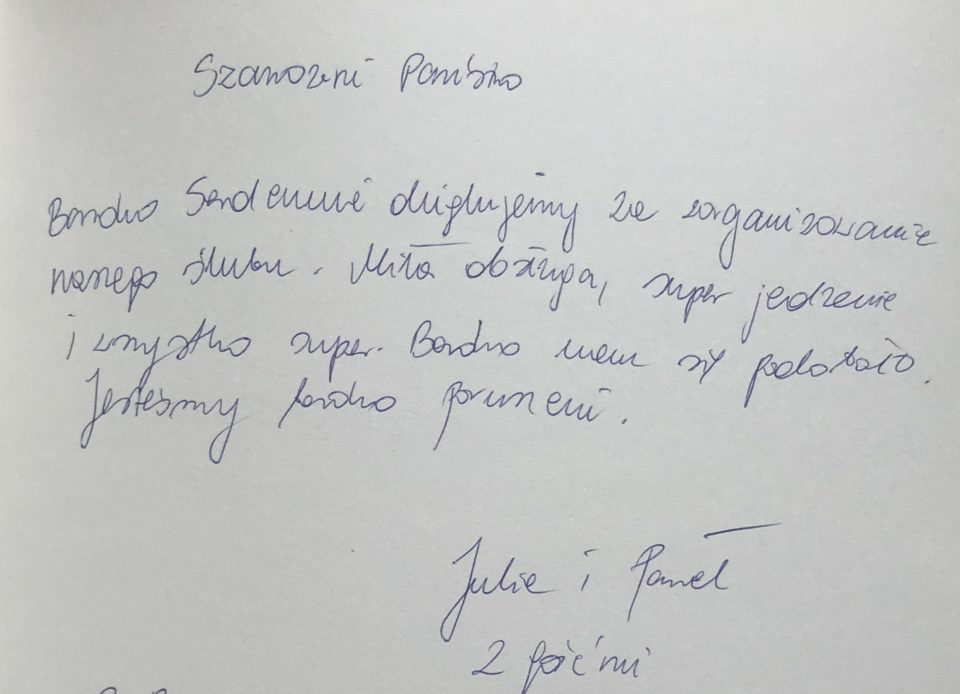 Szanowni Państwo
Bardzo Serdecznie dziękujemy za zorganizowanie
naszego ślubu. Miła obsługa, super jedzenie
i wszystko super. Bardzo nam się podobało.
Jesteśmy bardzo poruszeni.
Julia i Paweł
z gośćmi